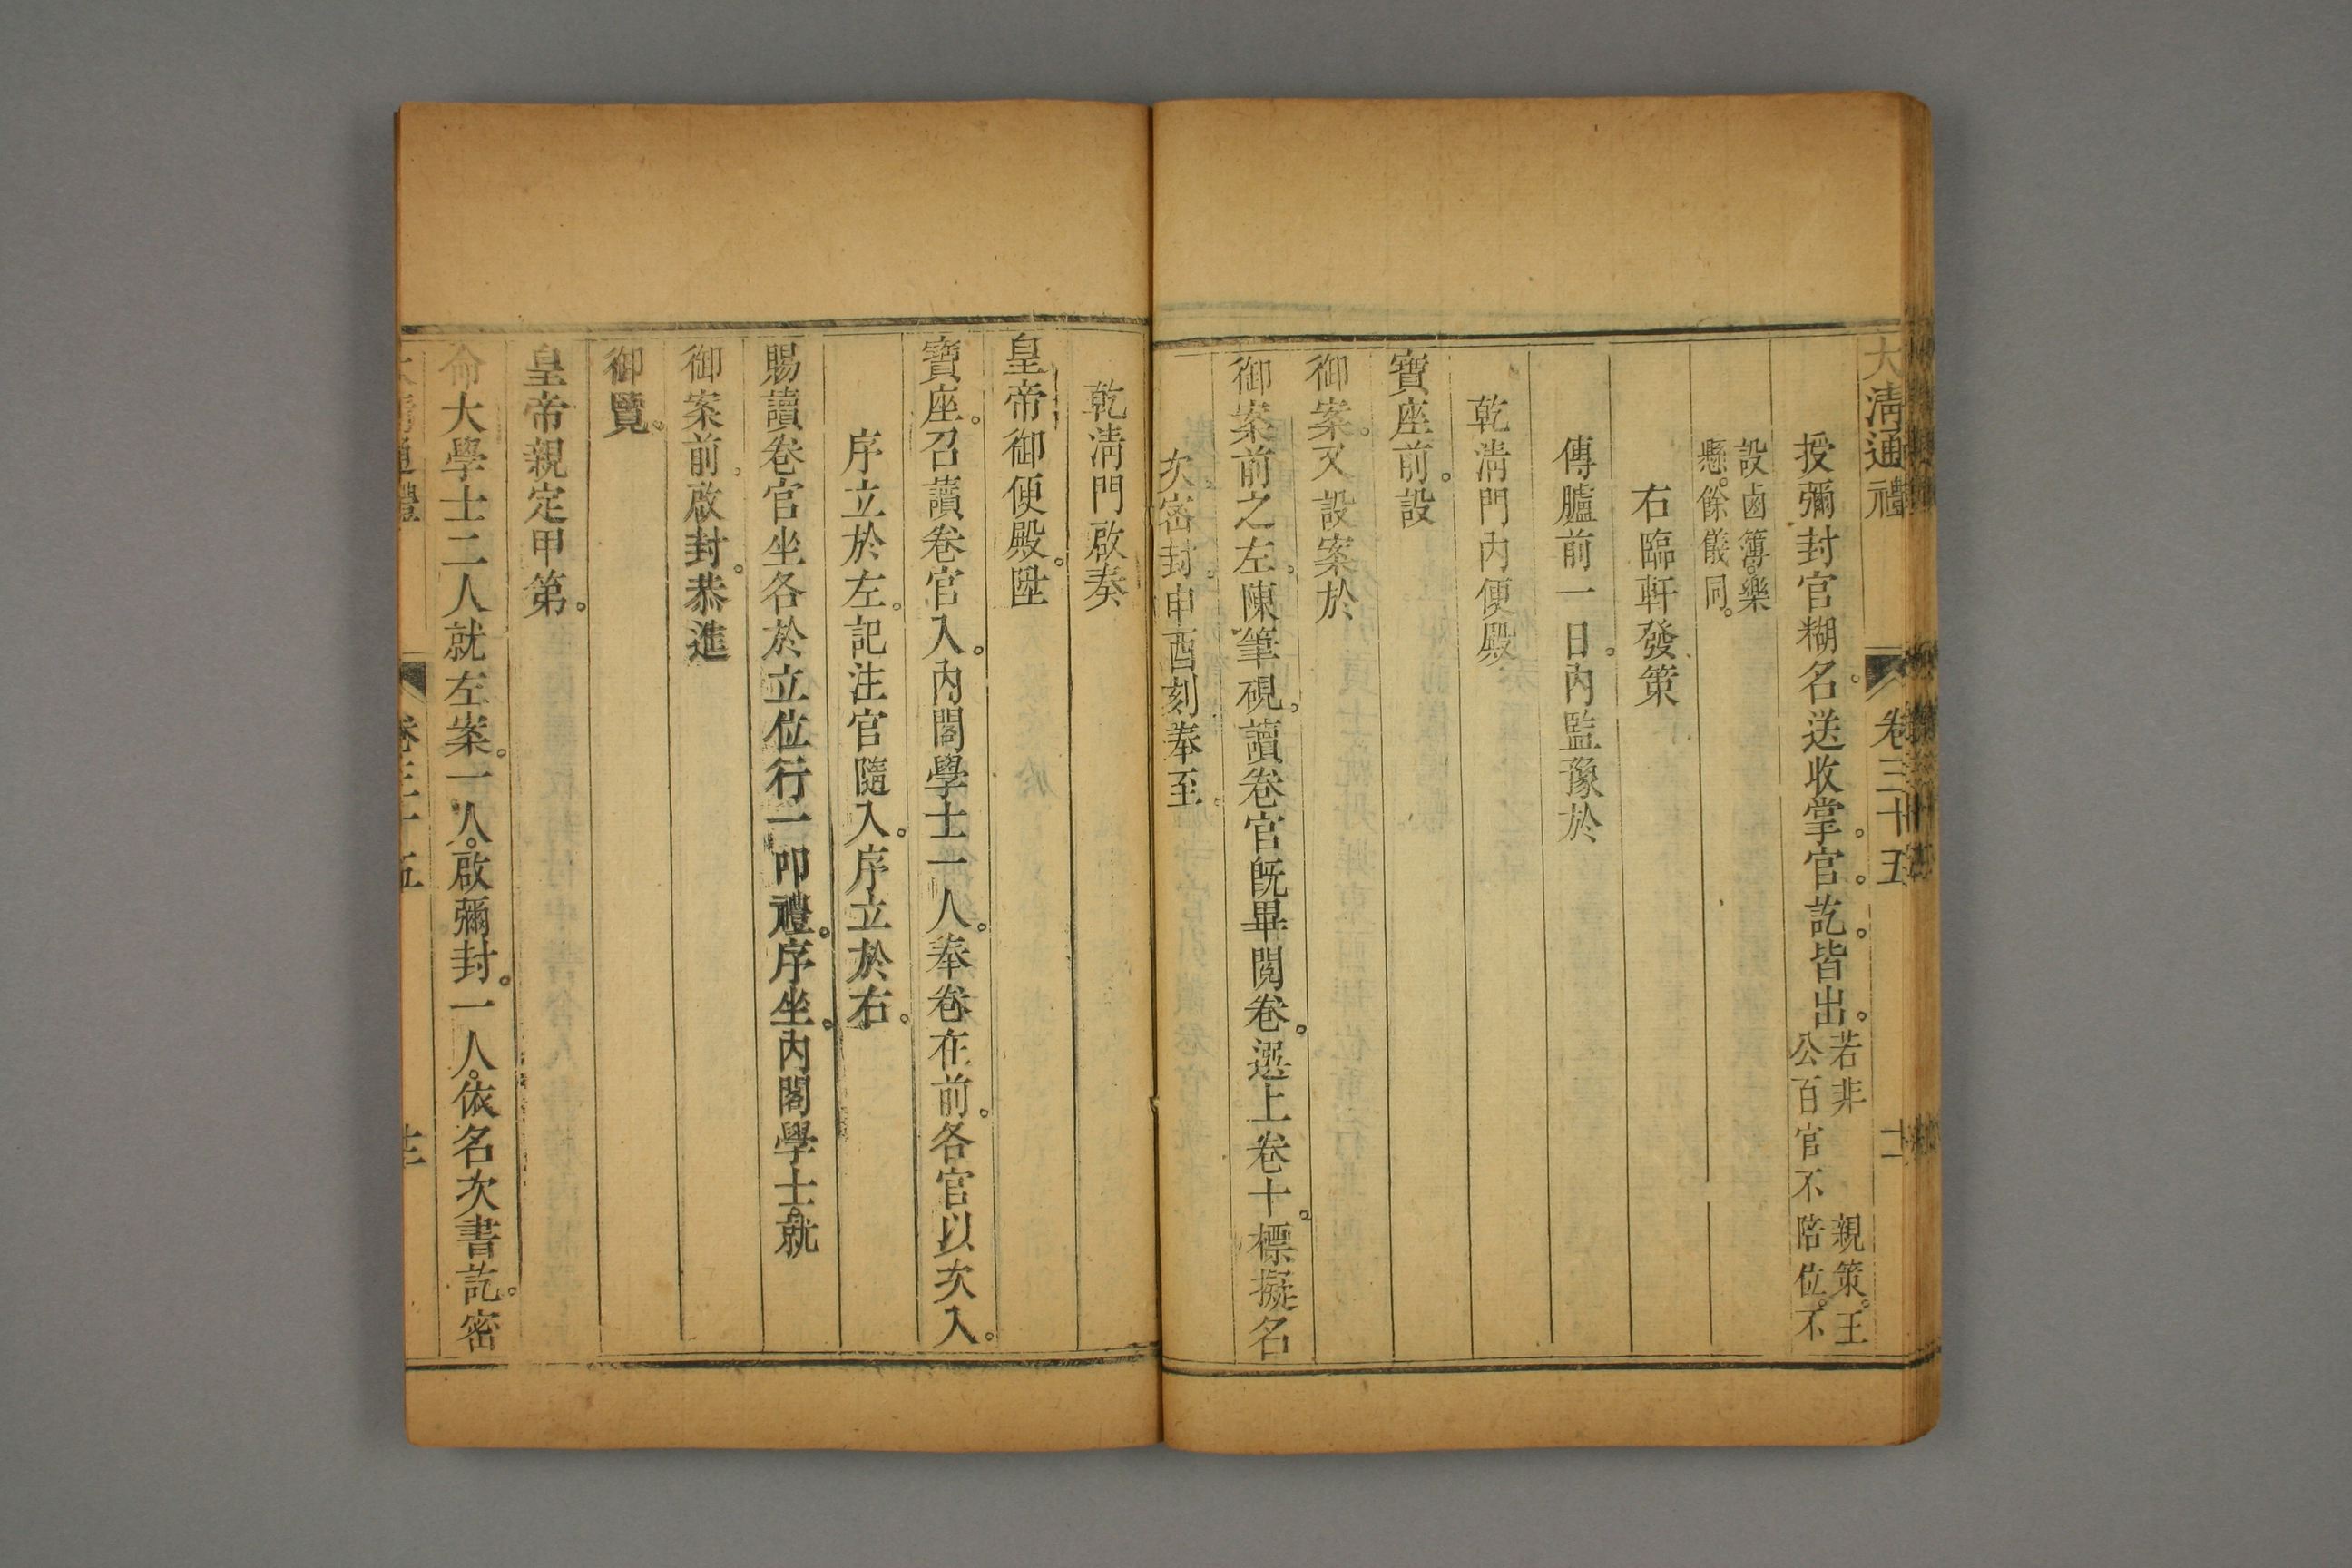 大清通禮 卷三十五 十二
授彌封官糊名。送收掌。官。訖。皆出。若非 親策。王
公百官不陪位。不
設鹵簿。樂
懸。餘儀同。
右臨軒發策
傳臚前一日。內監豫於
乾清門內便殿
寶座前。設
御案。又設案於
御案前之左。陳筆硯。讀卷官旣畢閱卷。選上卷十。標擬名
次。密封。申酉刻奉至。
乾清門啟奏
皇帝御便殿。陞
寶座。召讀卷官入。內閣學士一人。奉卷在前。各官以次入。
序立於左。記注官隨入。序立於右。
賜讀卷官坐各於立位行一叩禮。序坐。內閣學士。就
御案前。啟封。恭進
御覽。
皇帝親定甲第。
命大學士二人就左案。一人。啟彌封。一人。依名次書訖。密
卷三十五